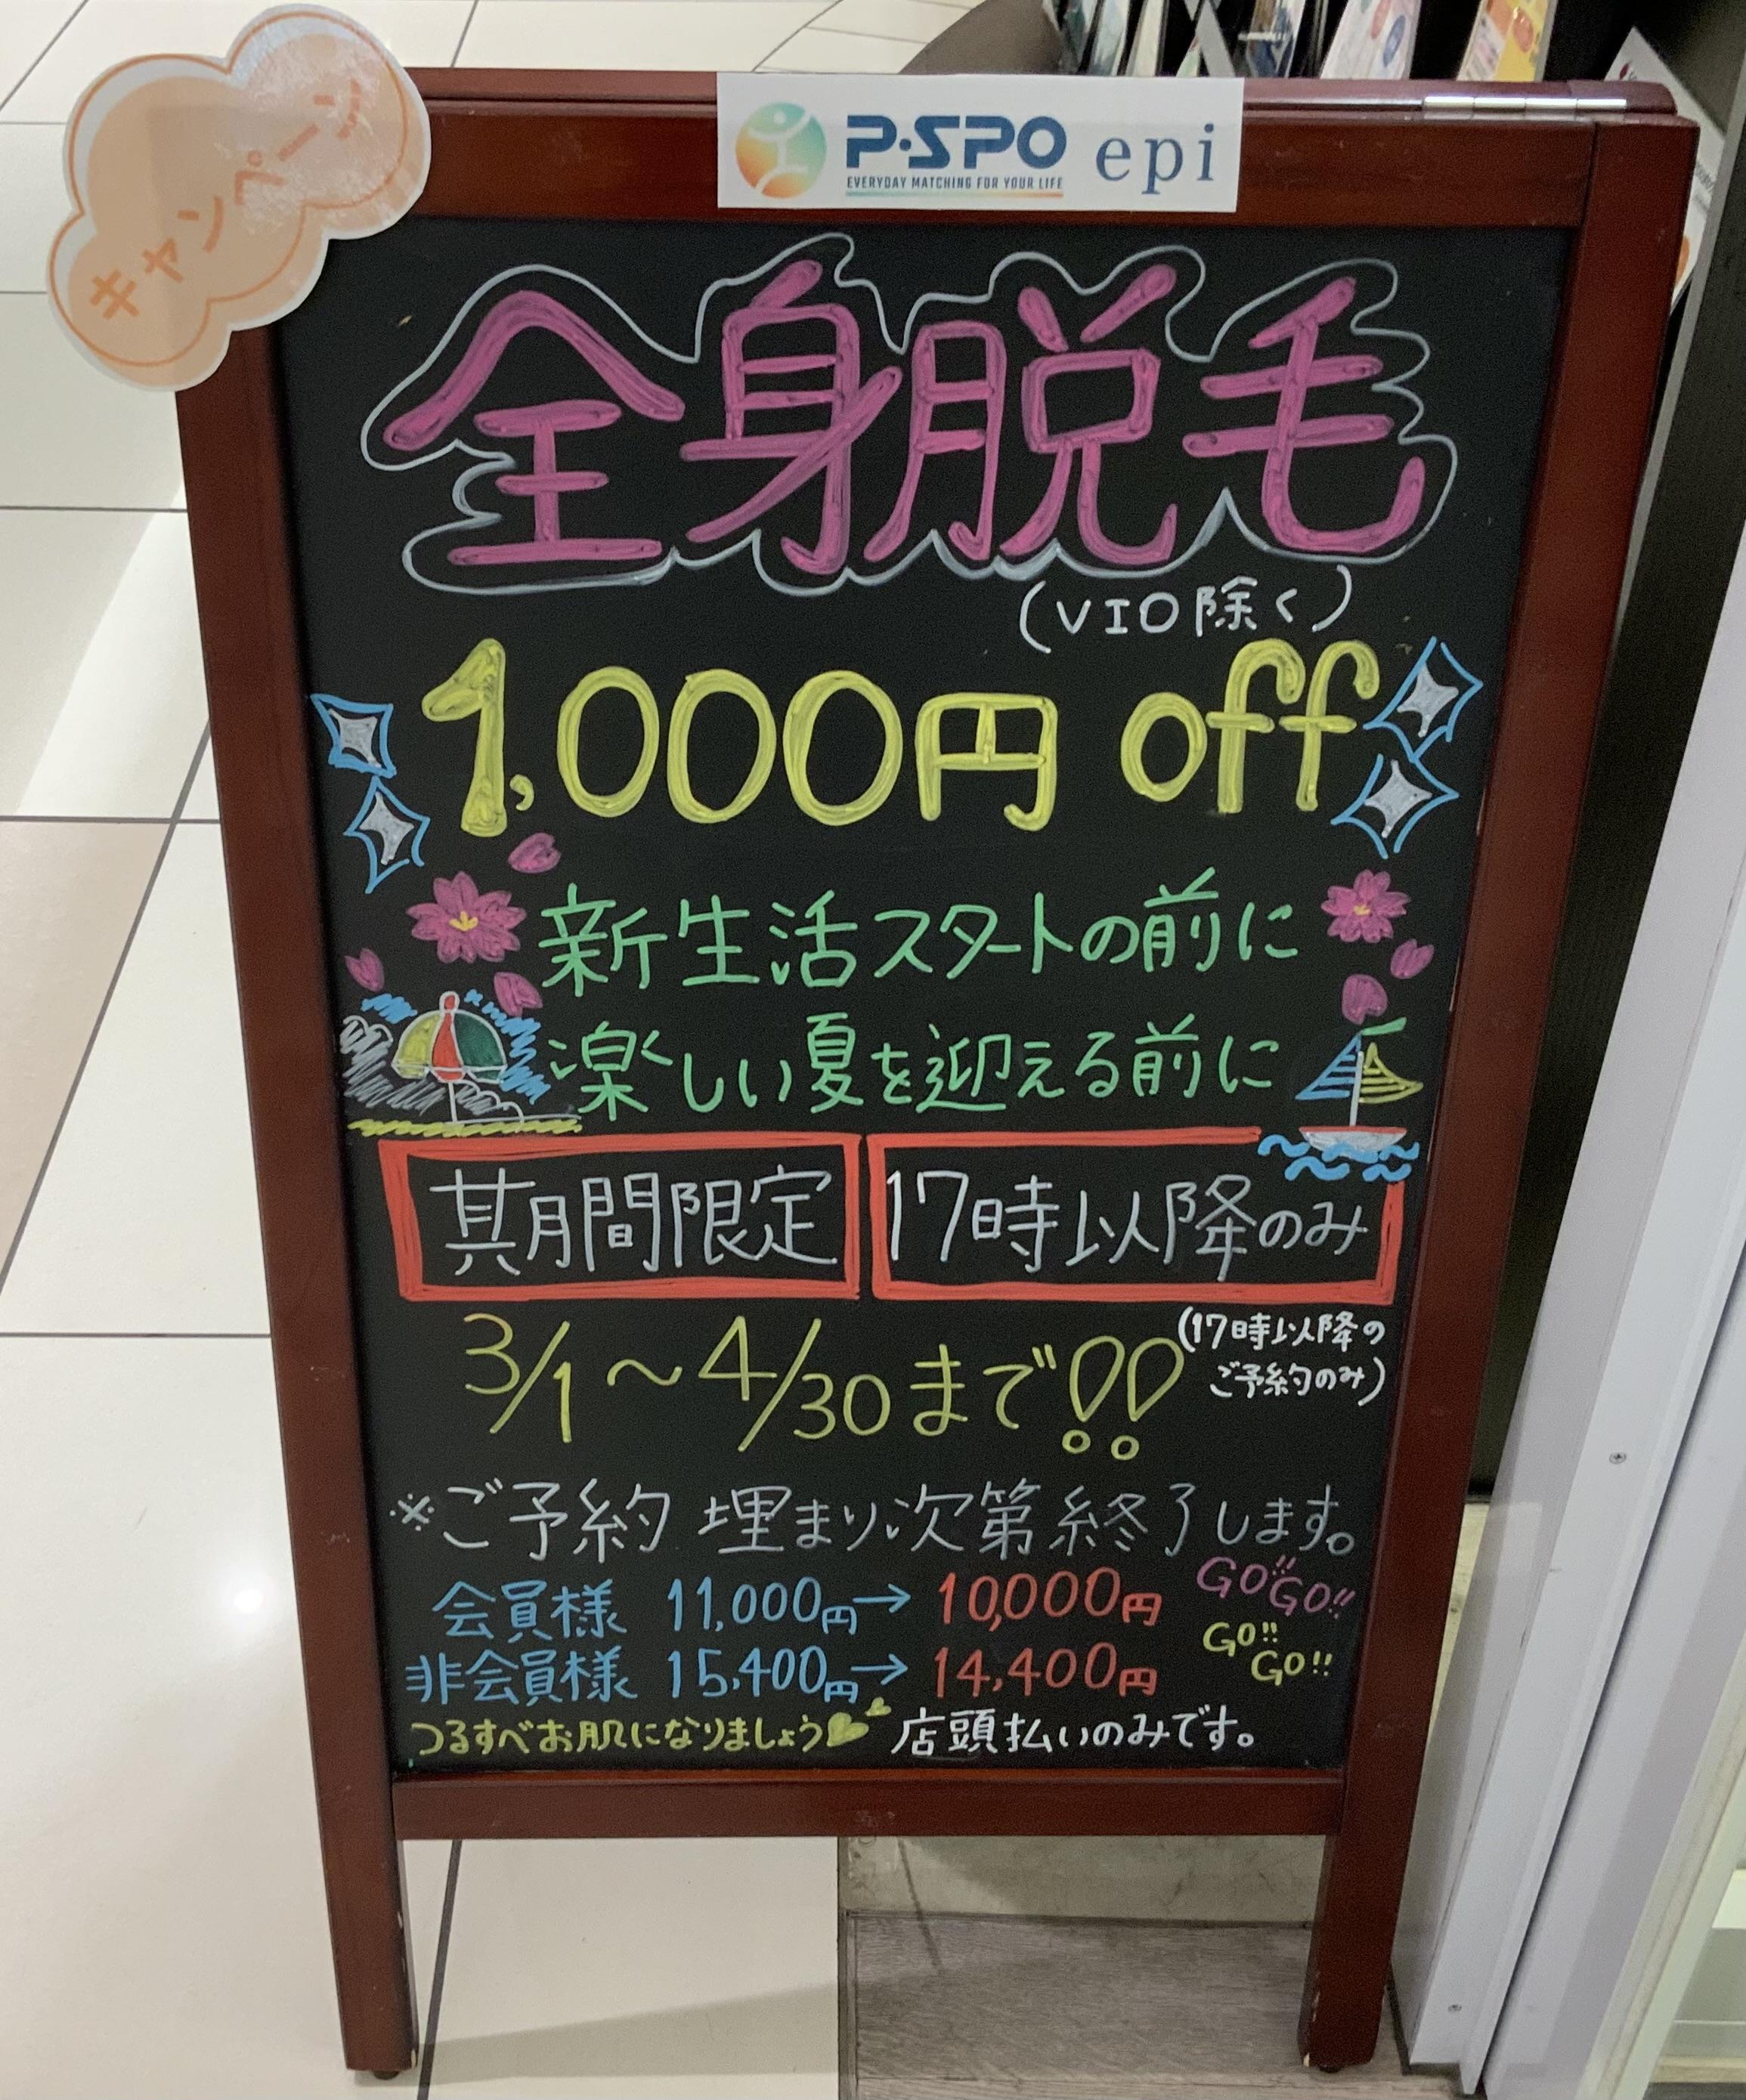 キャンペーン
P·SPO epi
EVERYDAY MATCHING FOR YOUR LIFE
全身脱毛
(VIO除く)
1,000円 off
新生活スタートの前に
楽しい夏を迎える前に
期間限定 17時以降のみ
3/1〜4/30まで!!
(17時以降の
ご予約のみ)
※ご予約 埋まり次第終了します。
会員様 11,000円→10,000円 GO!! GO!!
非会員様 15,400円→14,400円 GO!! GO!!
つるすべお肌になりましょう 店頭払いのみです。